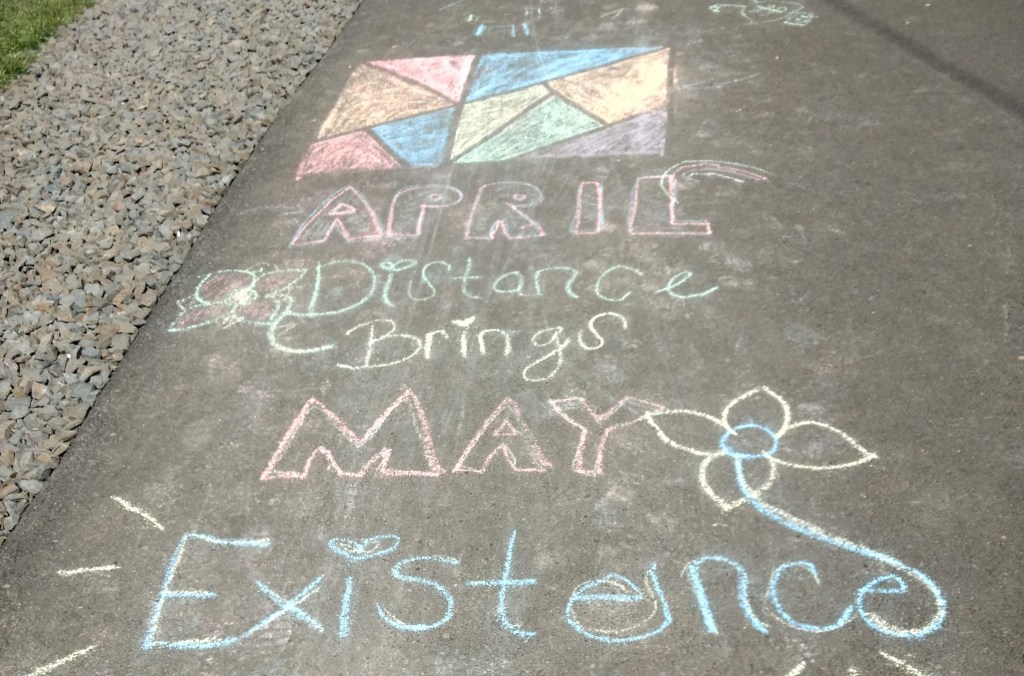 APRIL
Distance
Brings
MAY
Existence